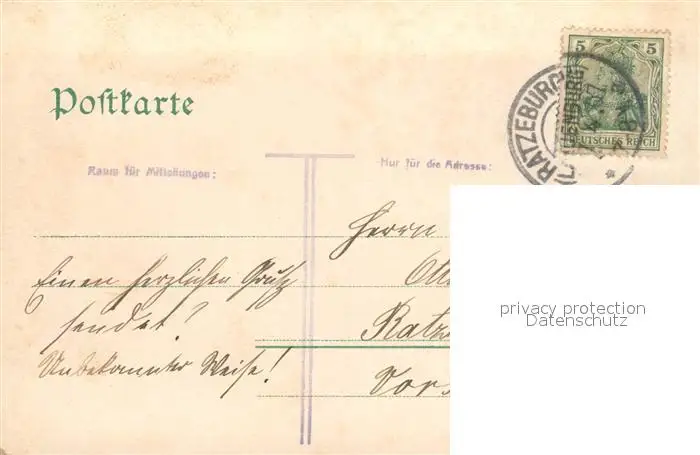 Postkarte
5 5
DEUTSCHES REICH
RATZEBURG
Raum für Mitteilungen:
Nur für die Adresse:
Herrn
Einen herzlichen Gruß
sendet?
Unbekannter Weise!
Otto
Ratze
Vors
privacy protection
Datenschutz